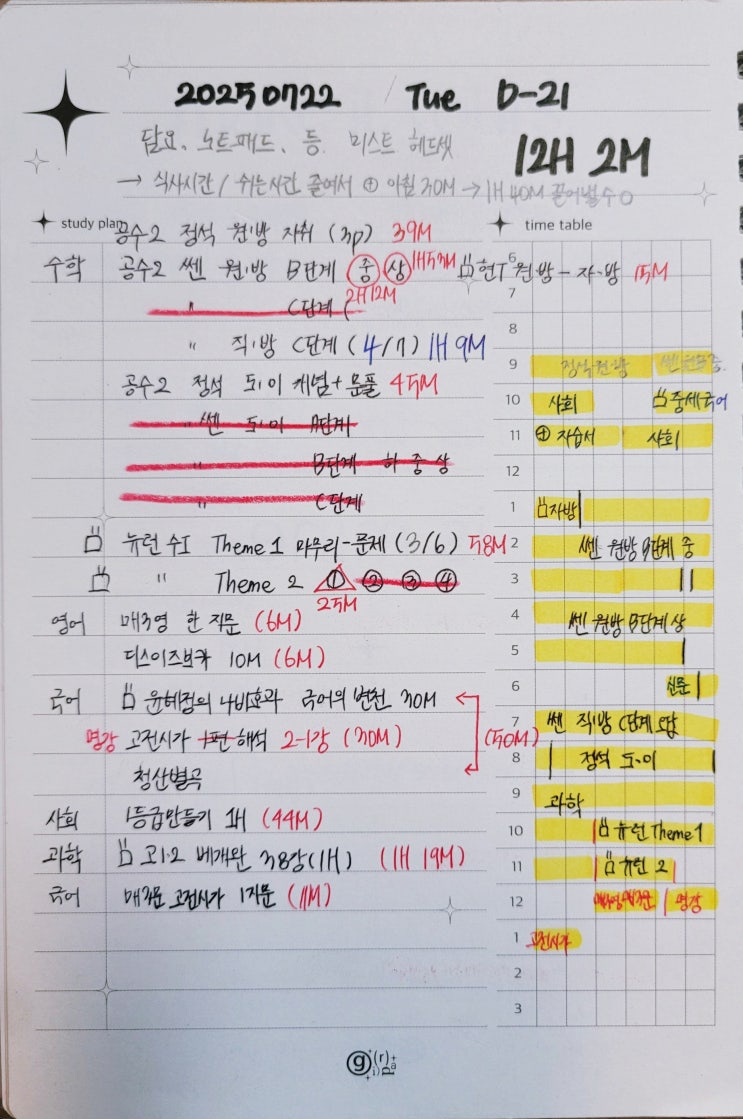 20250722 / Tue D-21
12H 2M
달요, 노트패드, 등. 미스트 헤드셋
→ 식사시간 / 쉬는시간 줄여서 ⊕ 아침 30M → 1H 40M 끌어낼 수 ○
study plan
공수2 정석 원·방 자취 (3p) 39M
수학 공수2 쎈 원·방 B단계 중 상 1H53M
2H12M
현T 원방 - 자·방 15M
" C단계 (
" 직·방 C단계 (4/7) 1H 9M
공수2 정석 도·이 개념+문풀 45M
" 쎈 도·이 A단계
" B단계 하 중 상
" C단계
뉴런 수I Theme 1 마무리-문제 (3/6) 58M
" Theme 2 ① ② ③ ④
25M
영어 매3영 한 지문 (6M)
디스이즈보카 10M (6M)
국어 윤혜정의 나비효과 국어의 변천 30M
명강 고전시가 1편 해석 2-1강 (30M)
(50M)
청산별곡
사회 1등급만들기 1H (44M)
과학 고1·2 베개완 38강(1H) (1H 19M)
국어 매3문 고전시가 1지문 (11M)
time table
6
7
8
9 정석 원방
10 사회 중세국어
11 ⊕ 자습서 사회
12
1 자방
2 쎈 원방 B단계 중
3
4 쎈 원방 B단계 상
5
6 신문
7 쎈 직방 C단계 오답
8 정석 도·이
9 과학
10 뉴런 Theme 1
11 뉴런 2
12 명강
1 고전시가
2
3
g (r)